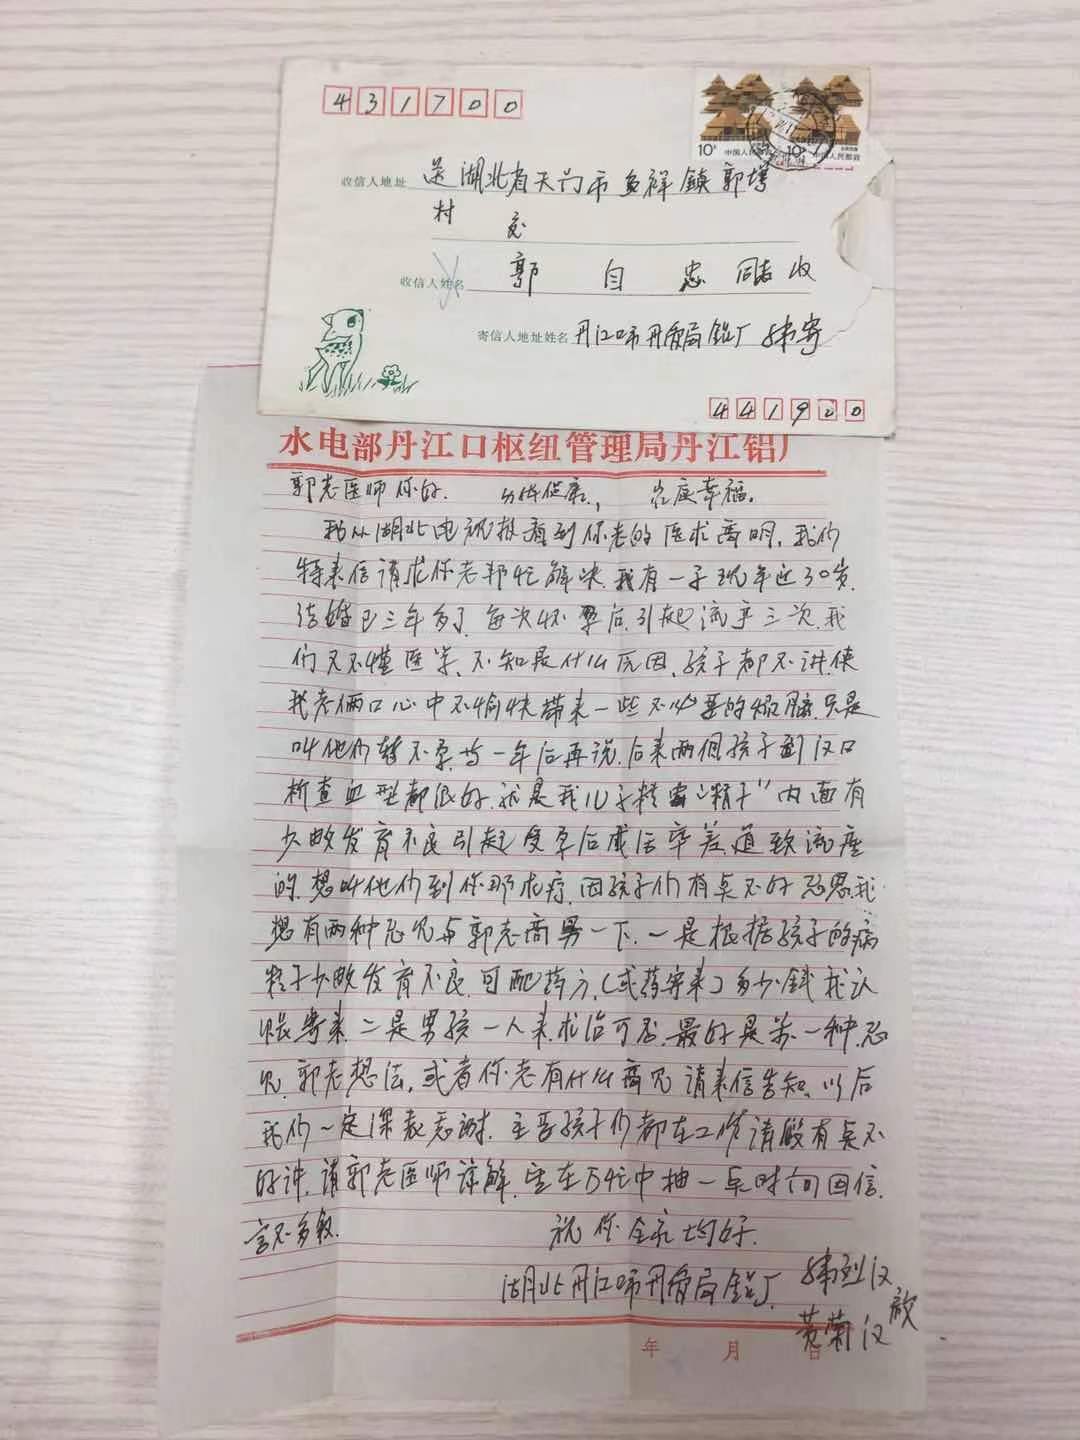 431700
收信人地址 送湖北省天门市多祥镇郭塔
村 交
收信人姓名 郭自忠 同志收
寄信人地址姓名 丹江口市丹管局铝厂 寄
441900
10分 中国人民邮政 10分 中国人民邮政
水电部丹江口枢纽管理局丹江铝厂
郭老医师你好. 身体健康, 家庭幸福。
我从湖北电视报看到你老的医术高明,我们
特来信请求你老邦忙解决.我有一子现年近30岁.
结婚已三年多了.每次怀孕后.引起流产三次.我
们又不懂医学.不知是什么原因.孩子都不讲.使
我老俩口心中不愉快带来一些不必要的烦脑.只是
叫他们暂不孕.等一年后再说.后来两个孩子到汉口
析查血型都很好.就是我儿子精密“精子”内面有
少数发育不良引起受孕后成活率差.道致流产
的.想叫他们到你那求疗.因孩子们有点不好意思.我
想有两种意见与郭老商另一下.一是根据孩子的病
精子少数发育不良.可配药方.(或药寄来)多少钱我认
帐寄来.二是男孩一人来求治可否.最好是第一种.意
见.郭老想法.或者你老有什么高见 请来信告知.以后
我们一定深表感谢.主要孩子们都在工作请假有点不
好讲.请郭老医师谅解.望在万忙中抽一点时间回信.
言不多叙. 祝你全家均好.
湖北丹江口市丹管局铝厂. 汉
黄菊汉 敬
年 月 日